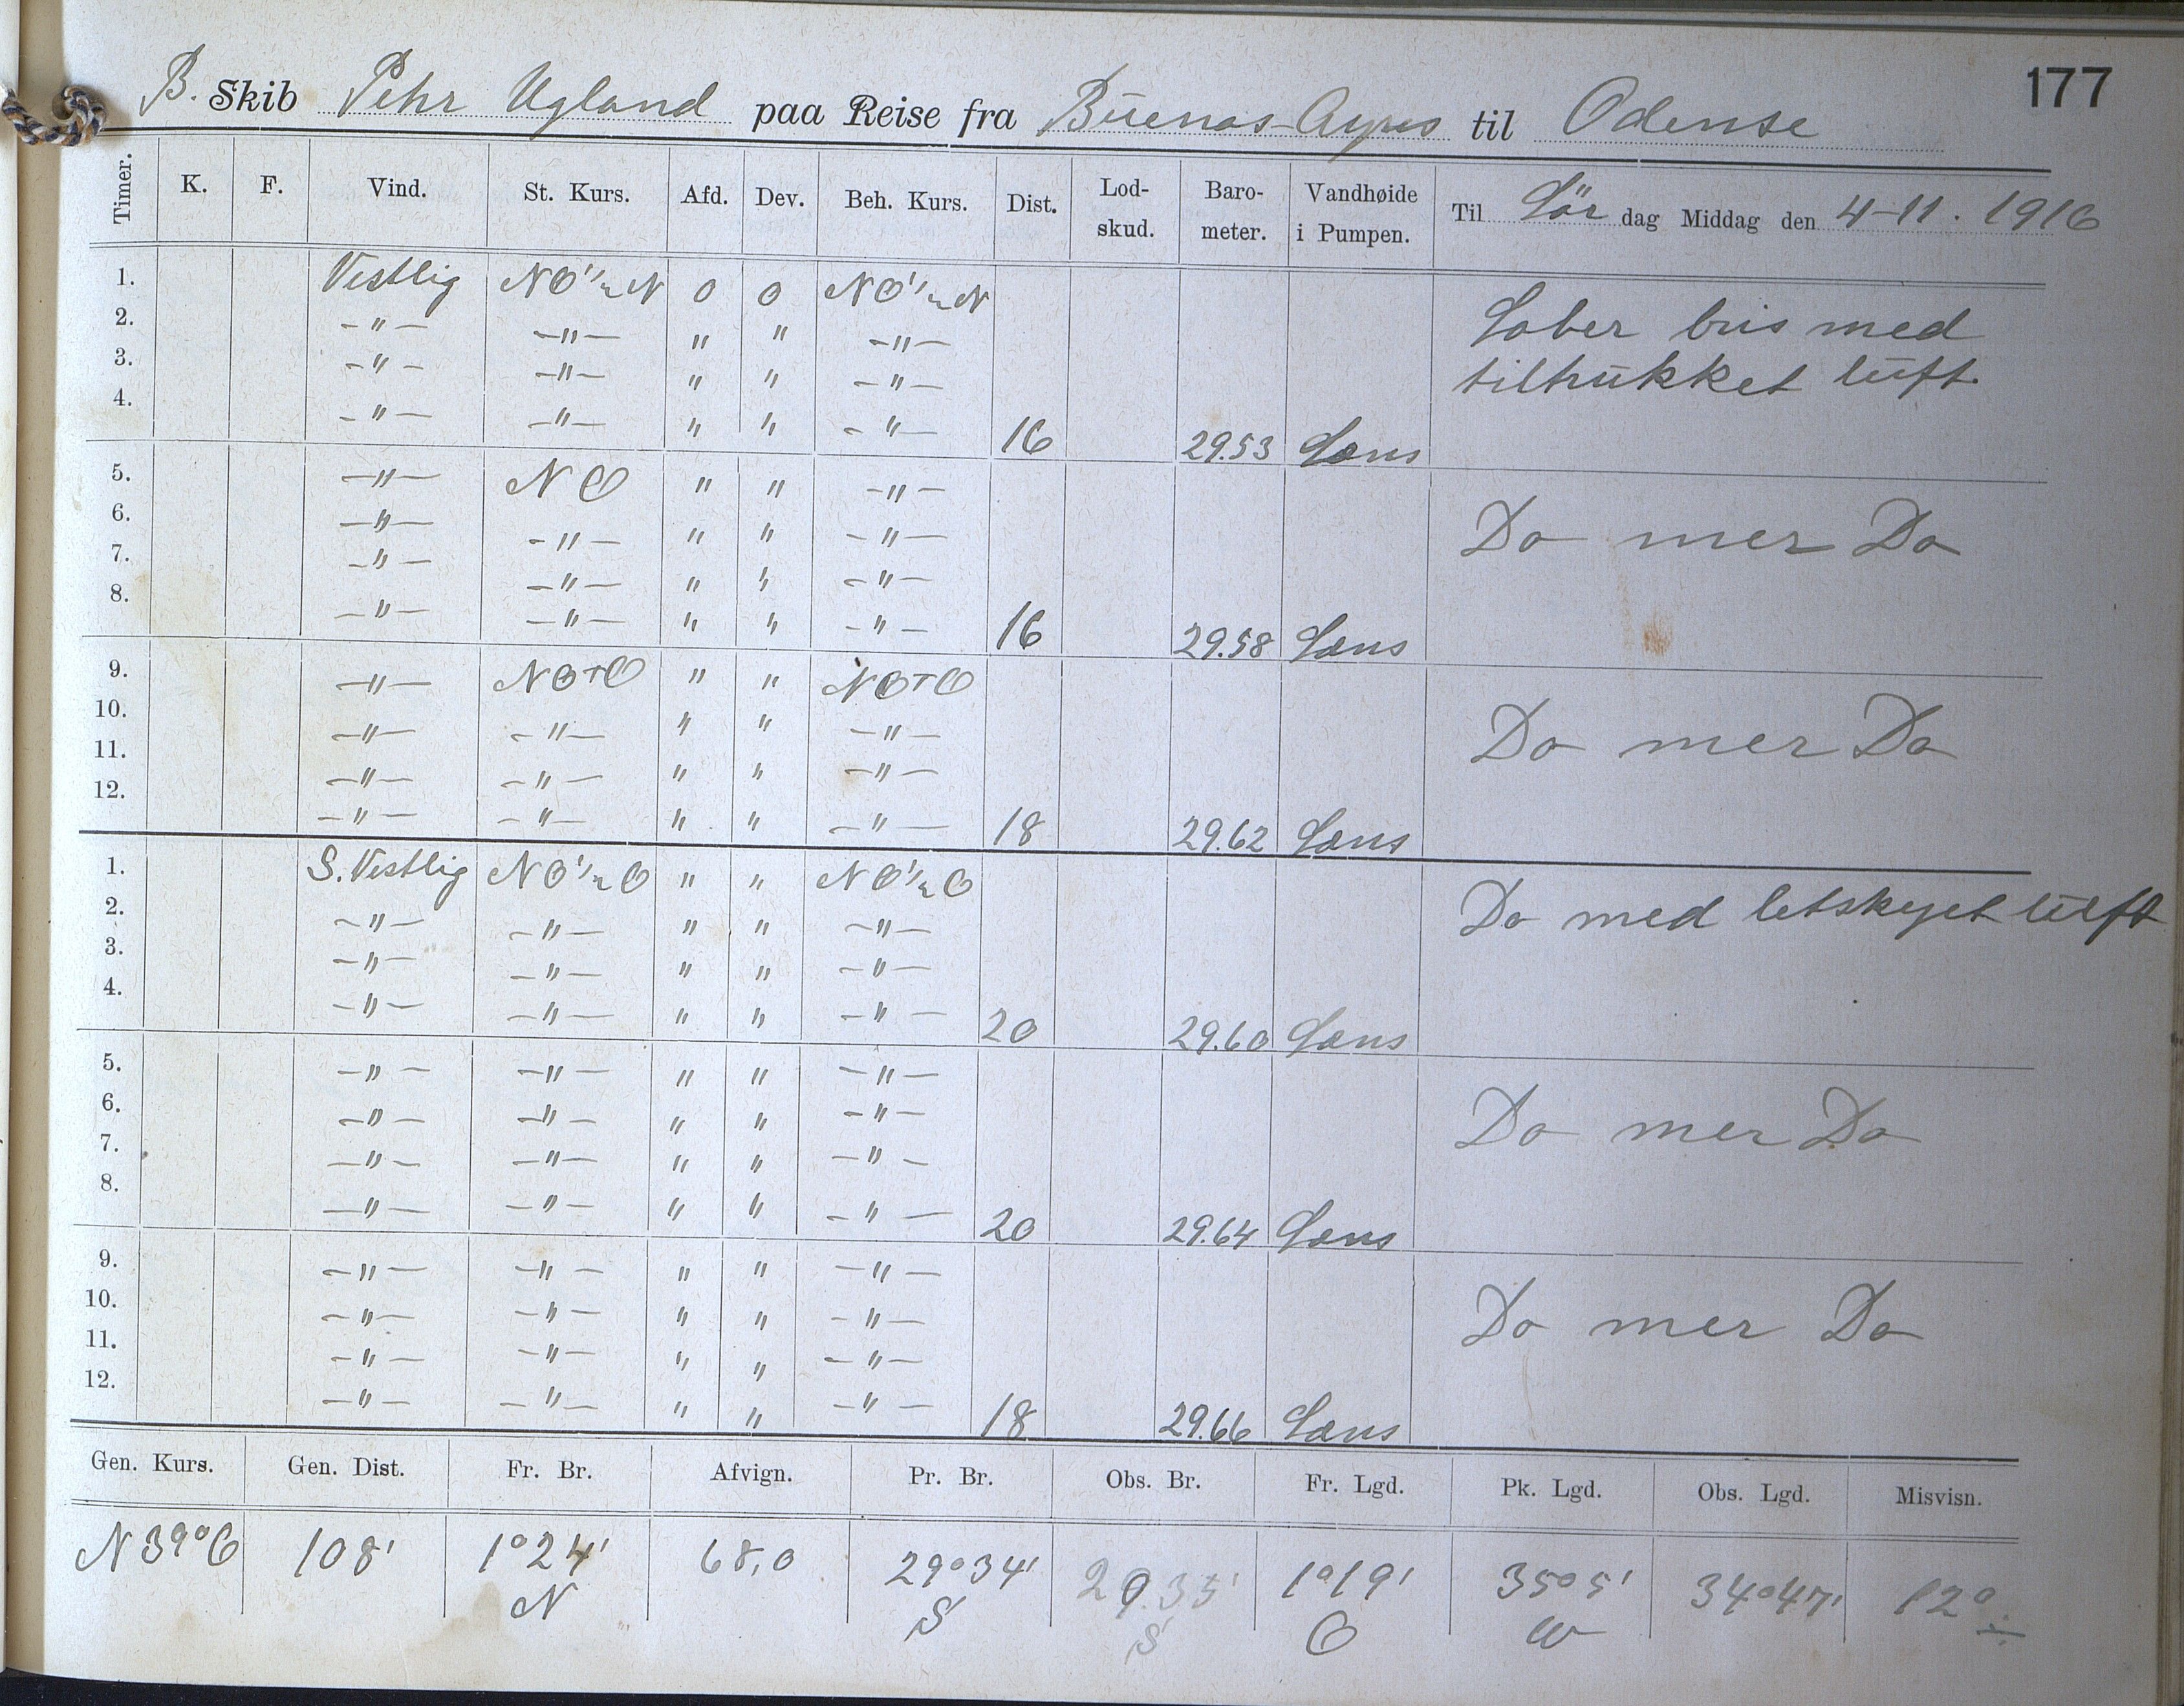 177
B. Skib Pehr Ugland paa Reise fra Buenos-Ayres til Odense
Timer. K. F. Vind. St. Kurs. Afd. Dev. Beh. Kurs. Dist. Lod-skud. Baro-meter. Vandhøide i Pumpen. Til Lör dag Middag den 4-11. 1916
1. Vestlig NO½N 0 0 NO½N Laber bris med
2. -"- -"- " " -"- tiltrukket luft.
3. -"- -"- " " -"-
4. -"- -"- " " -"- 16 29.53 Læns
5. -"- NO " " -"- Do mer Do
6. -"- -"- " " -"-
7. -"- -"- " " -"-
8. -"- -"- " " -"- 16 29.58 Læns
9. -"- NOTO " " NOTO Do mer Do
10. -"- -"- " " -"-
11. -"- -"- " " -"-
12. -"- -"- " " -"- 18 29.62 Læns
1. S. Vestlig NO½O " " NO½O Do med letskyet luft
2. -"- -"- " " -"-
3. -"- -"- " " -"-
4. -"- -"- " " -"- 20 29.60 Læns
5. -"- -"- " " -"- Do mer Do
6. -"- -"- " " -"-
7. -"- -"- " " -"-
8. -"- -"- " " -"- 20 29.64 Læns
9. -"- -"- " " -"- Do mer Do
10. -"- -"- " " -"-
11. -"- -"- " " -"-
12. -"- -"- " " -"- 18 29.66 Læns
Gen. Kurs. Gen. Dist. Fr. Br. Afvign. Pr. Br. Obs. Br. Fr. Lgd. Pk. Lgd. Obs. Lgd. Misvisn.
N 39° O 108' 1°24' 68,0 29°34' 29.35' 1°19' 35°5' 34°47' 12° ÷
N S S O W